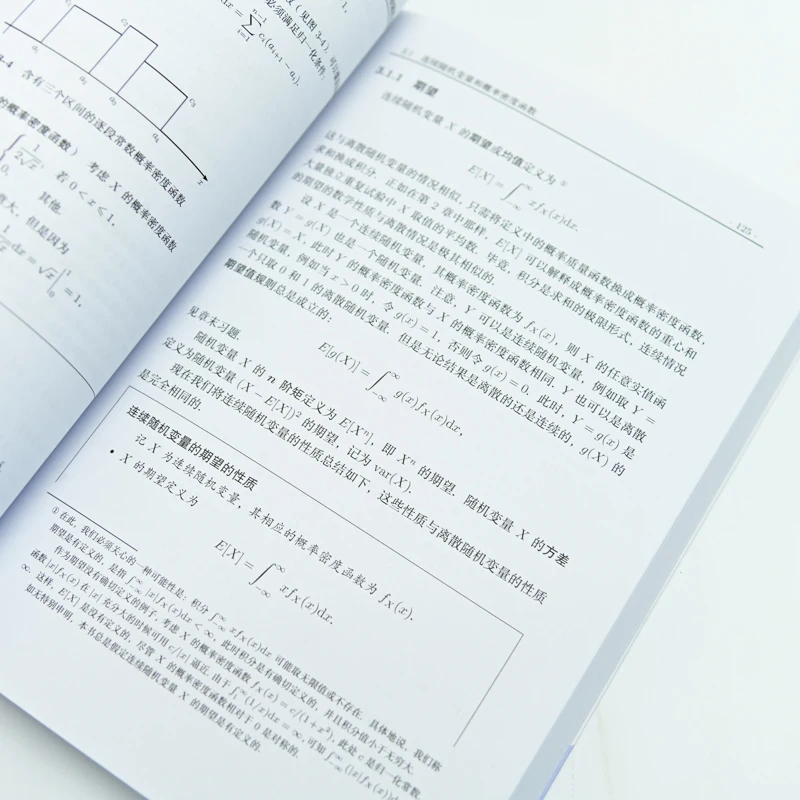 必须满足归一化条件.
3-4 含有三个区间的逐段常数概率密度函数
的概率密度函数) 考虑 X 的概率密度函数
若 0 < x < 1,
0, 其他.
大, 但是因为
3.1 连续随机变量和概率密度函数
· 125 ·
3.1.1 期望
连续随机变量 X 的期望或均值定义为 ①
E[X] = ∫_{-∞}^{∞} x f_X(x)dx.
这与离散随机变量的情况相似, 只需将定义中的概率质量函数换成概率密度函数,
求和换成积分. 正如在第 2 章中那样, E[X] 可以解释成概率密度函数的重心和
大量独立重复试验中 X 取值的平均数. 毕竟, 积分是求和的极限形式, 连续情况
的期望的数学性质与离散情况是极其相似的.
设 X 是一个连续随机变量, 其概率密度函数为 f_X(x), 则 X 的任意实值函
数 Y = g(X) 也是一个随机变量. 注意, Y 可以是连续随机变量, 例如取 Y =
g(X) = X, 此时 Y 的概率密度函数与 X 的概率密度函数相同. Y 也可以是离散
随机变量, 例如当 x > 0 时, 令 g(x) = 1, 否则令 g(x) = 0. 此时, Y = g(x) 是
一个只取 0 和 1 的离散随机变量. 但是无论结果是离散的还是连续的, g(X) 的
期望值规则总是成立的:
E[g(X)] = ∫_{-∞}^{∞} g(x) f_X(x)dx,
见章末习题.
随机变量 X 的 n 阶矩定义为 E[X^n], 即 X^n 的期望. 随机变量 X 的方差
定义为随机变量 (X − E[X])² 的期望, 记为 var(X).
现在我们将连续随机变量的性质总结如下, 这些性质与离散随机变量的性质
是完全相同的.
连续随机变量的期望的性质
记 X 为连续随机变量, 其相应的概率密度函数为 f_X(x).
• X 的期望定义为
E[X] = ∫_{-∞}^{∞} x f_X(x)dx.
① 在此, 我们必须关心的一种可能性是: 积分 ∫_{-∞}^{∞} x f_X(x)dx 可能取无限值或不存在. 具体地说, 我们称
期望是有定义的, 是指 ∫_{-∞}^{∞} |x| f_X(x)dx < ∞, 此时积分是有确切定义的, 并且积分值小于无穷大.
作为期望没有确切定义的例子, 考虑 X 的概率密度函数 f_X(x) = c/(1 + x²), 此处 c 是归一化常数.
函数 |x| f_X(x) 在 |x| 充分大的时候可用 c/|x| 逼近. 由于 ∫_1^∞ (1/x)dx = ∞, 可知 ∫_{-∞}^{∞} |x| f_X(x)dx
∞. 这样, E[X] 是没有定义的, 尽管 X 的概率密度函数相对于 0 是对称的.
如无特别申明, 本书总是假定连续随机变量 X 的期望是有定义的.